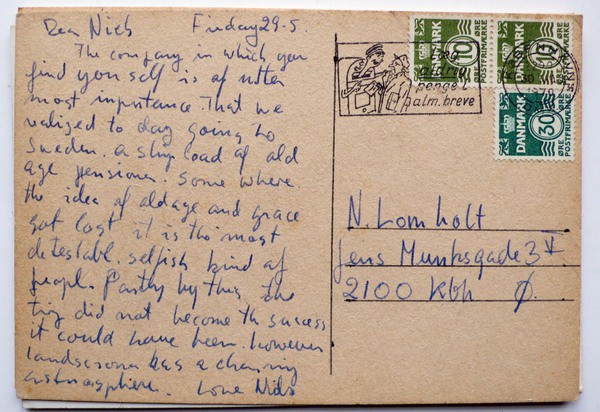 Dear Niels Friday 29-5.
The company in which you
find your self is af utter
most inportance That we
realized to day going to
Sweden. a ship load af old
age pensioner. some where
the idea af oldage and grace
got lost it is the most
detestabl. selfish kind af
peopl. Partly by this the
trip did not become th success
it could have been. however
landscrona has a
astmosphere. Love Niels
DANMARK
10
ØRE
POSTFRIMÆRKE
DANMARK
ØRE
POSTFRIMÆRKE
aldrig
penge i
alm. breve
DANMARK
30
ØRE
POSTFRIMÆRKE
N. Lomholt
Jens Munksgade 3 V
2100 Kbh Ø.